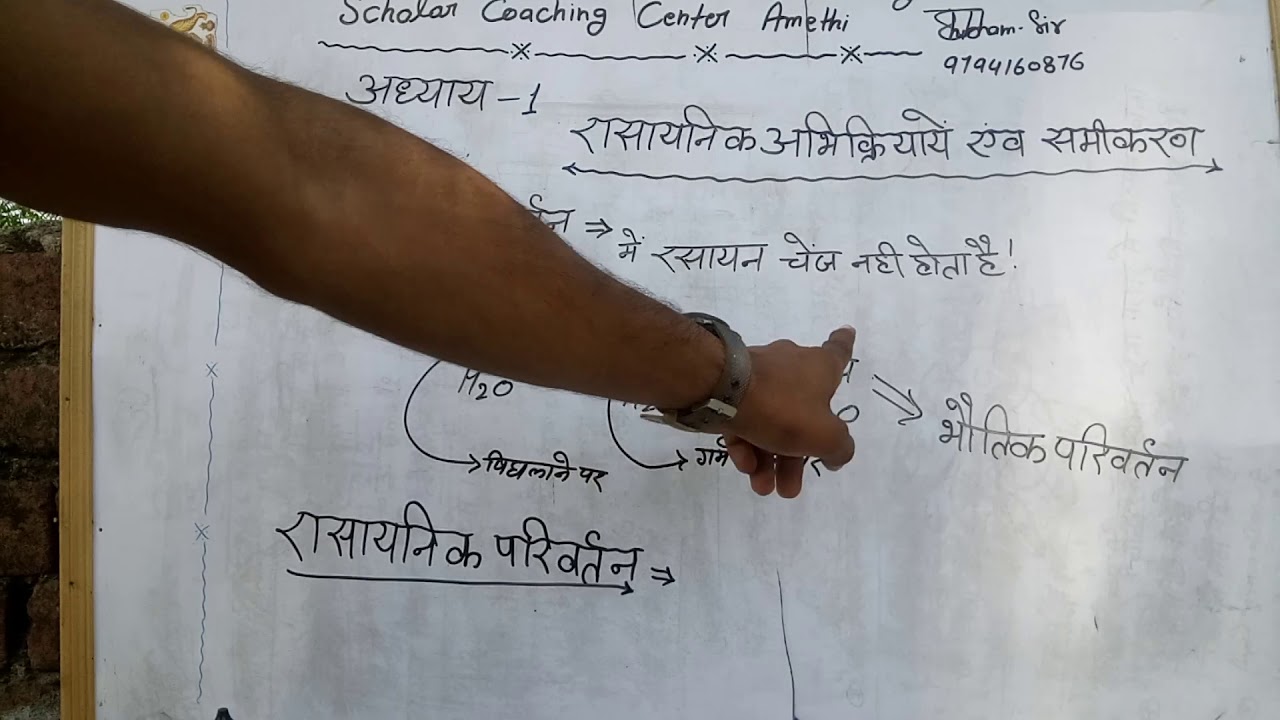 Scholar Coaching Center Amethi
Shubham Sir
9794160876
अध्याय -1
रासायनिक अभिक्रियायें एंव समीकरण
र्तन ⇒ में रसायन चेंज नही होता है!
H2O
पिघलाने पर
गर्म
भौतिक परिवर्तन
रासायनिक परिवर्तन ⇒